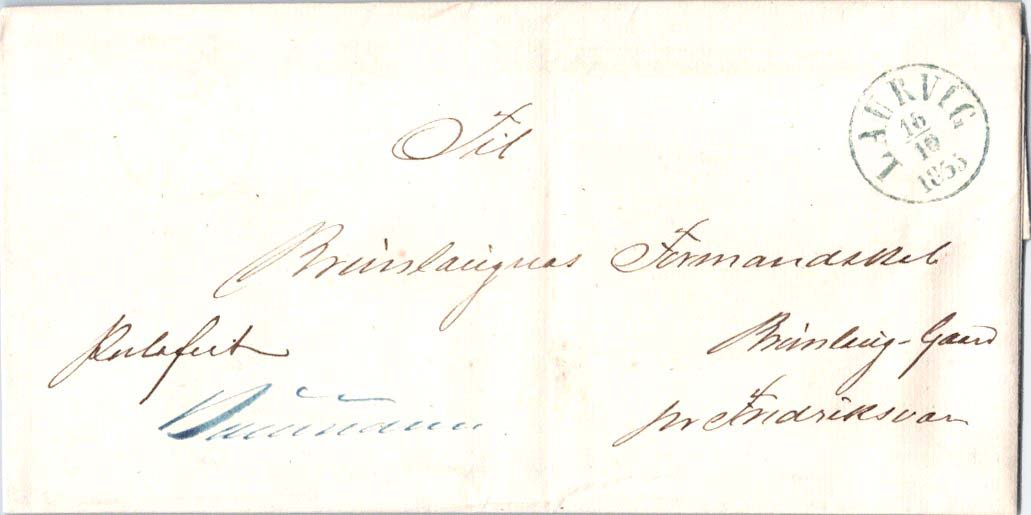 LAURVIG
16
10
1855
Til
Brunlaugnæs Formandskab
Portofrit
Brunlaug-Gaard
pr Fredriksværn